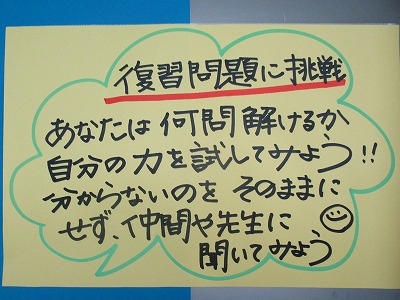 復習問題に挑戦
あなたは何問解けるか
自分の力を試してみよう!!
分からないのをそのままに
せず、仲間や先生に
聞いてみよう